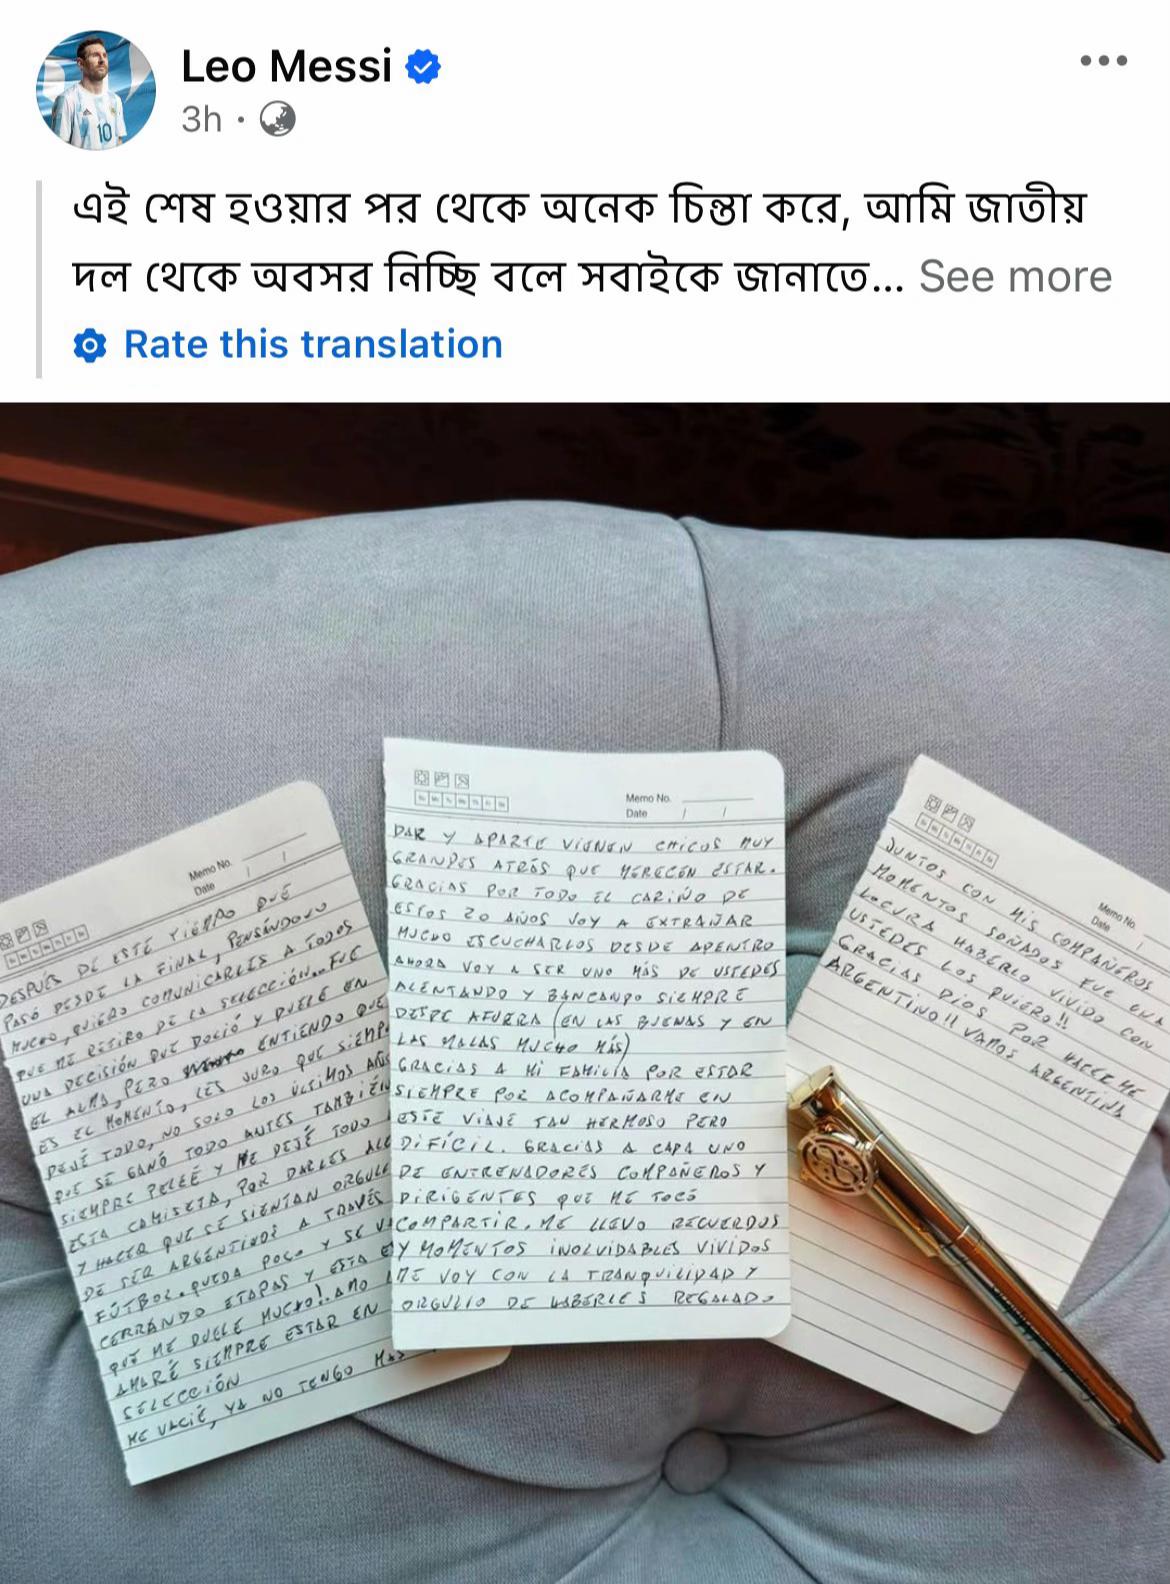 Leo Messi
3h ·
এই শেষ হওয়ার পর থেকে অনেক চিন্তা করে, আমি জাতীয়
দল থেকে অবসর নিচ্ছি বলে সবাইকে জানাতে... See more
Rate this translation
10
Memo No.
Date / /
DESPUÉS DE ESTE TIEMPO QUE
PASÓ DESDE LA FINAL, PENSÁNDOLO
MUCHO, QUIERO COMUNICARLES A TODOS
QUE ME RETIRO DE LA SELECCIÓN... FUE
UNA DECISIÓN QUE DOLIÓ Y DUELE EN
EL ALMA, PERO ENTIENDO QUE
ES EL MOMENTO, LES JURO QUE SIEMP
DEJÉ TODO, NO SOLO LOS ÚLTIMOS AÑ
QUE SE GANÓ TODO ANTES TAMBIÉN
SIEMPRE PELEÉ Y ME DEJÉ TODO
ESTA CAMISETA, POR DARLES ALE
Y HACER QUE SE SIENTAN ORGULL
DE SER ARGENTINOS A TRAVÉS
FÚTBOL. QUEDA POCO Y SE V
CERRANDO ETAPAS Y ESTA E
QUE ME DUELE MUCHO! AMO
AMARÉ SIEMPRE ESTAR EN
SELECCIÓN
ME VACIÉ, YA NO TENGO MÁS
Memo No.
Date / /
DAR Y APARTE VIENEN CHICOS MUY
GRANDES ATRÁS QUE MERECEN ESTAR.
GRACIAS POR TODO EL CARIÑO DE
ESTOS 20 AÑOS VOY A EXTRAÑAR
MUCHO ESCUCHARLOS DESDE ADENTRO
AHORA VOY A SER UNO MÁS DE USTEDES
ALENTANDO Y BANCANDO SIEMPRE
DESDE AFUERA (EN LAS BUENAS Y EN
LAS MALAS MUCHO MÁS)
GRACIAS A MI FAMILIA POR ESTAR
SIEMPRE POR ACOMPAÑARME EN
ESTE VIAJE TAN HERMOSO PERO
DIFÍCIL. GRACIAS A CADA UNO
DE ENTRENADORES COMPAÑEROS Y
DIRIGENTES QUE ME TOCÓ
COMPARTIR. ME LLEVO RECUERDOS
Y MOMENTOS INOLVIDABLES VIVIDOS
ME VOY CON LA TRANQUILIDAD Y
ORGULLO DE HABERLES REGALADO
Memo No.
Date /
JUNTOS CON MIS COMPAÑEROS
MOMENTOS SOÑADOS FUE UNA
LOCURA HABERLO VIVIDO CON
USTEDES LOS QUIERO!!
GRACIAS DIOS POR HACERME
ARGENTINO!! VAMOS ARGENTINA